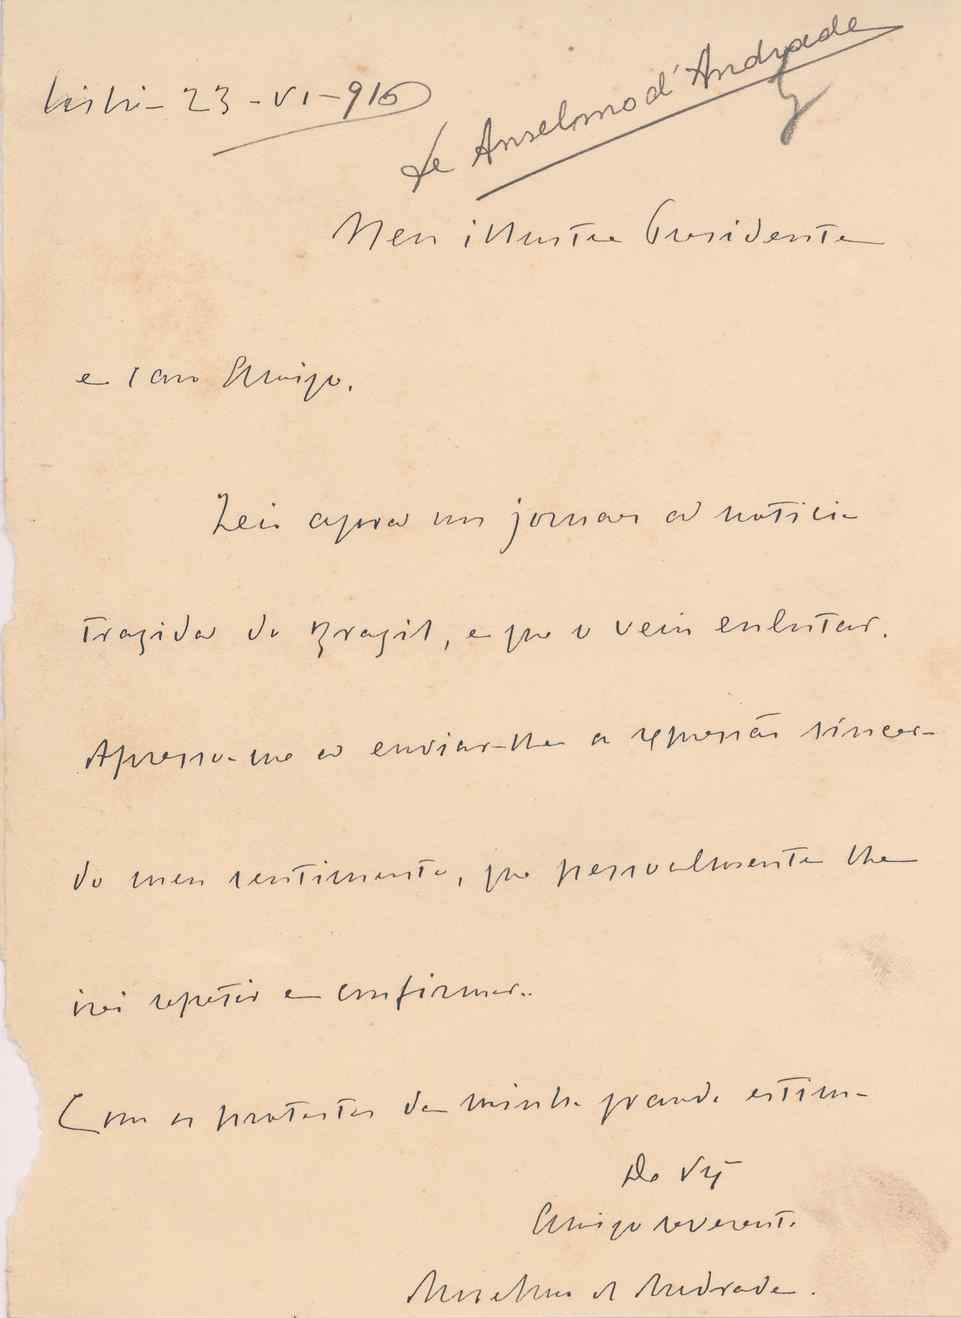 Lisb. - 23 - VI - 916
de Anselmo d'Andrade
Meu illustre Presidente
e caro Amigo.
Leio agora um jornar a noticia
trazida do Brazil, e que o vem enlutar.
Apresso-me a enviar-lhe a expressão sincera
do meu sentimento, que pessoalmente lhe
irei repetir e confirmar.
Com os protestos da minha grande estima
De V.
Amigo reverente
Anselmo d'Andrade.